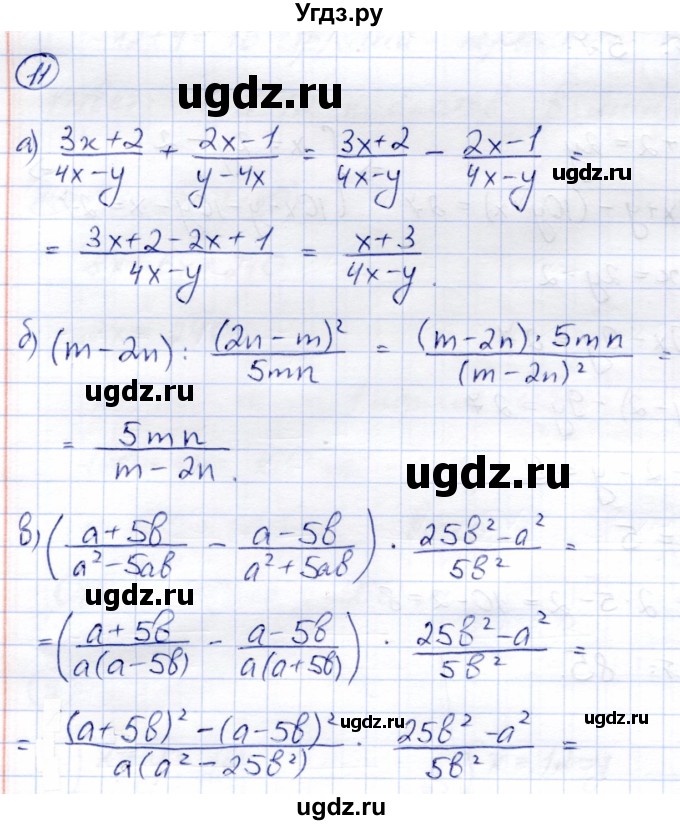 Угдз.ру
ugdz.ru
11
а) (3x+2)/(4x-y) + (2x-1)/(y-4x) = (3x+2)/(4x-y) - (2x-1)/(4x-y) =
ugdz.ru
= (3x+2-2x+1)/(4x-y) = (x+3)/(4x-y).
б) (m-2n) : (2n-m)²/(5mn) = ((m-2n)·5mn)/(m-2n)² =
ugdz.ru
= 5mn/(m-2n).
ugdz.ru
в) ((a+5b)/(a²-5ab) - (a-5b)/(a²+5ab)) · (25b²-a²)/(5b²) =
ugdz.ru
= ((a+5b)/(a(a-5b)) - (a-5b)/(a(a+5b))) · (25b²-a²)/(5b²) =
ugdz.ru
ugdz.ru
= ((a+5b)²-(a-5b)²)/(a(a²-25b²)) · (25b²-a²)/(5b²) =
ugdz.ru
ugdz.ru